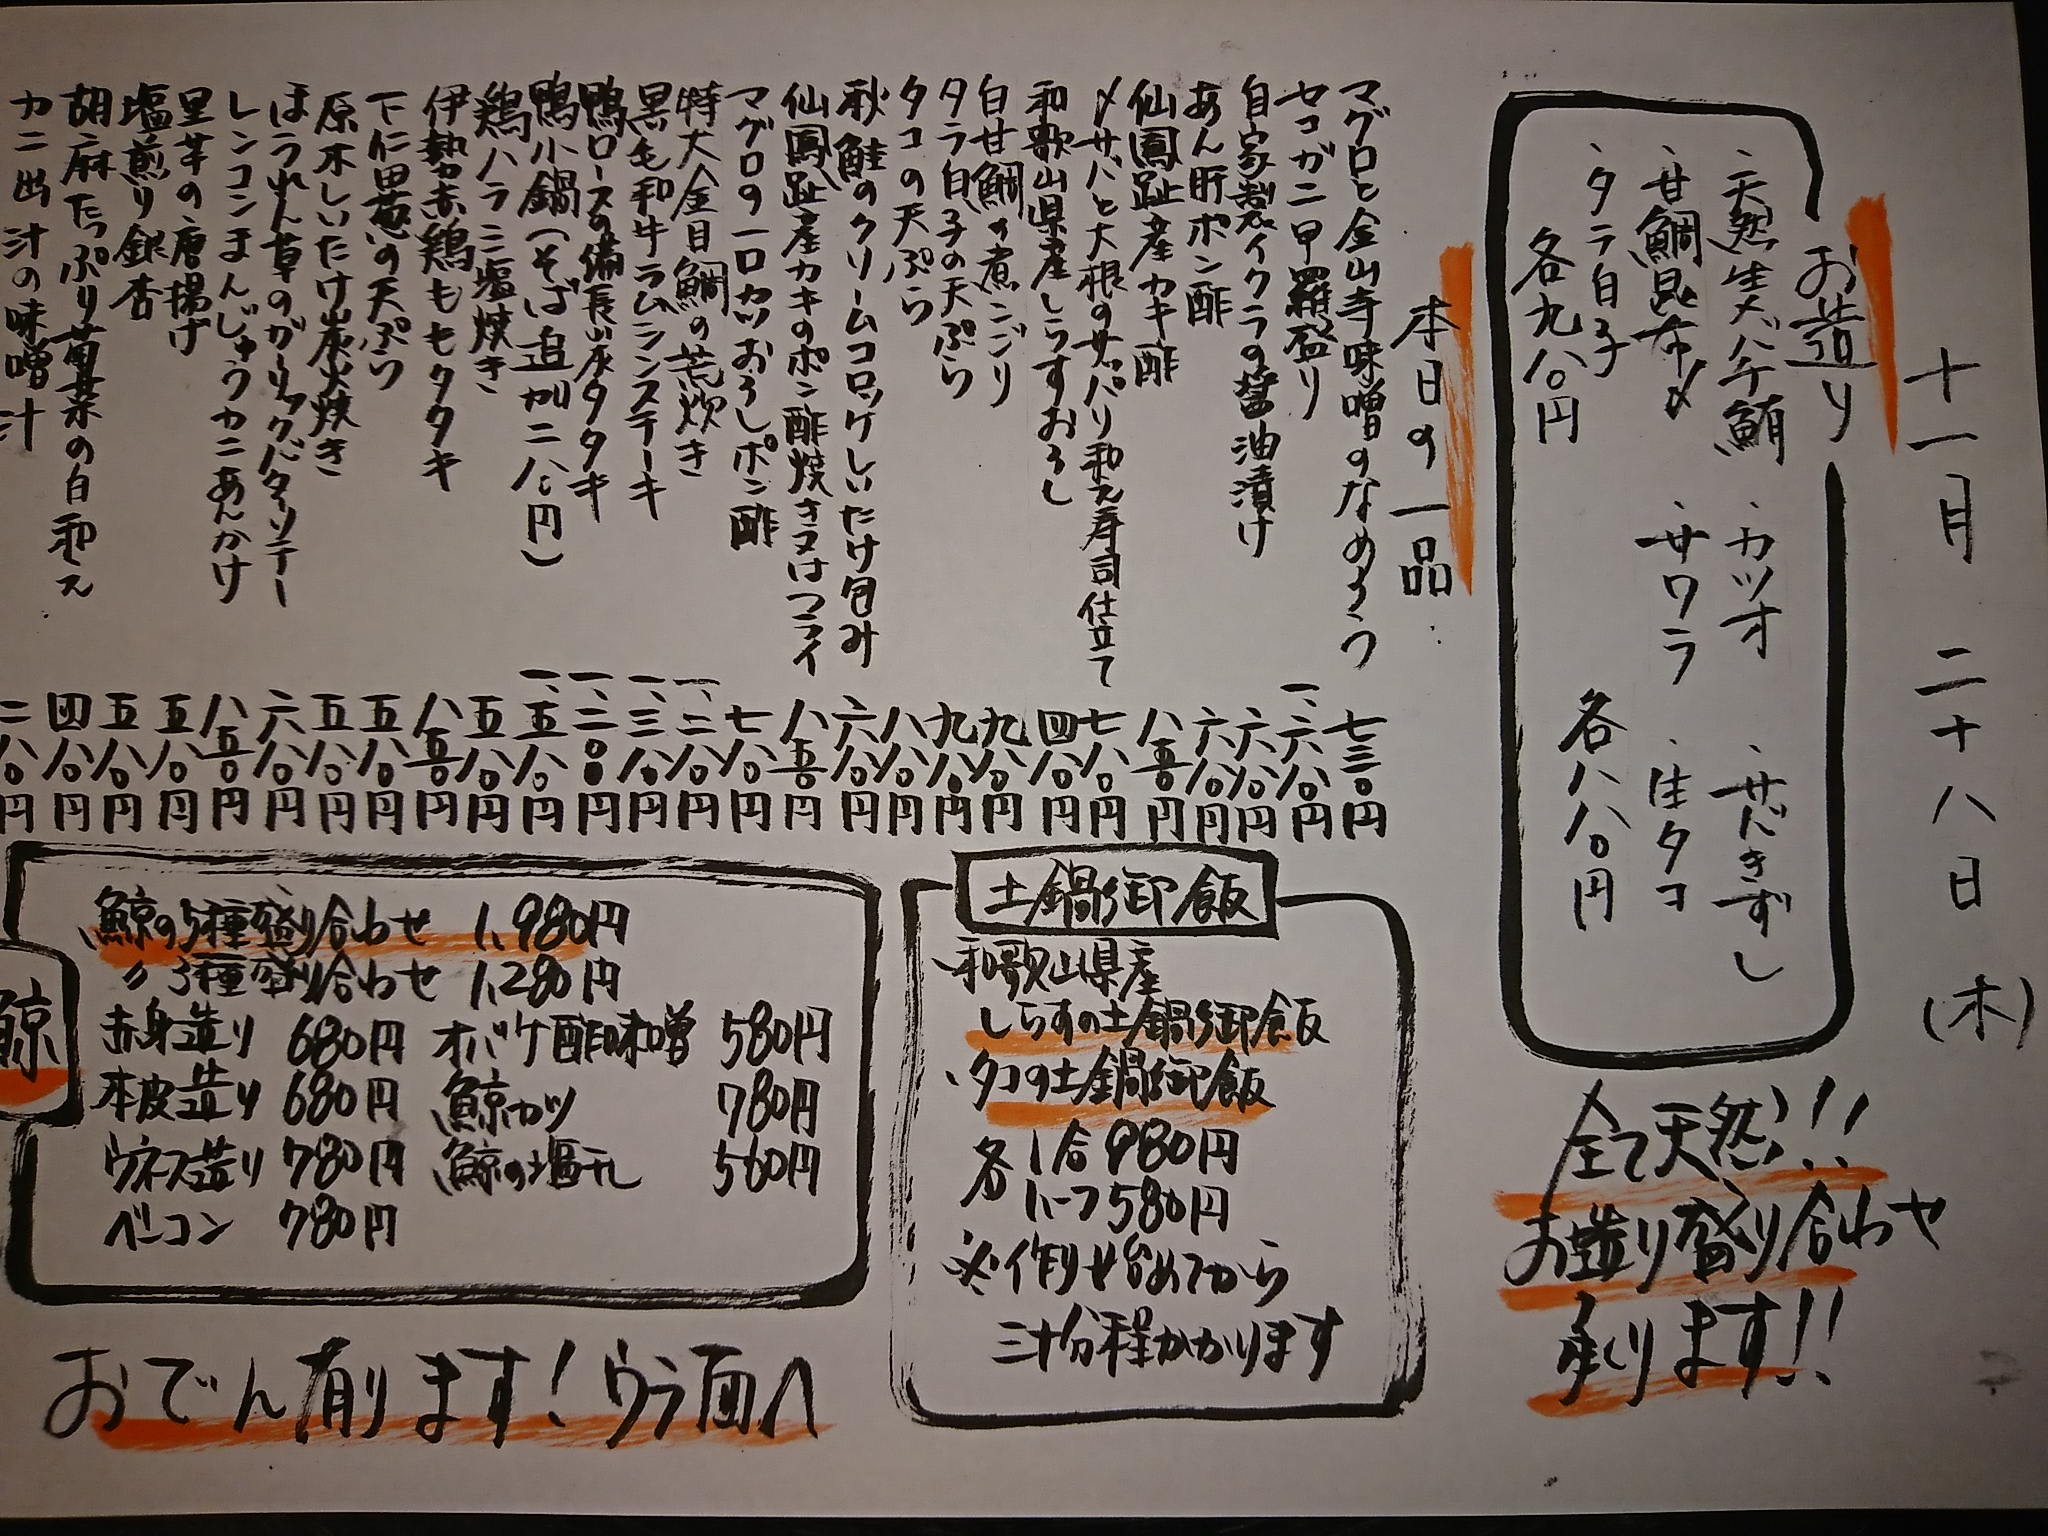 十一月 二十八日 (木)
お造り
・天然生メバチ鮪 ・カツオ ・サバきずし
・甘鯛昆布〆 ・サワラ ・生タコ
・タラ白子
各八八〇円
各九八〇円
全て天然!!
お造り盛り合わせ
承ります!!
本日の一品
マグロと金山寺味噌のなめろう 七三〇円
セコガニ甲羅盛り 一、六八〇円
自家製イクラの醤油漬け 六八〇円
あん肝ポン酢 六八〇円
仙鳳趾産カキ酢 八五〇円
〆サバと大根のサッパリ和え寿司仕立て 七八〇円
和歌山県産しらすおろし 四八〇円
白甘鯛の煮こごり 九八〇円
タラ白子の天ぷら 九八〇円
タコの天ぷら 八八〇円
秋鮭のクリームコロッケしいたけ包み 六八〇円
仙鳳趾産カキのポン酢焼き又はフライ 八五〇円
マグロの一口カツおろしポン酢 七八〇円
特大金目鯛の荒炊き 一、二八〇円
黒毛和牛ラムシンステーキ 一、三八〇円
鴨ロースの備長炭タタキ 一、二〇〇円
鴨小鍋(そば追加二八〇円) 一、五八〇円
鶏ハラミ塩焼き 五八〇円
伊勢赤鶏ももタタキ 八五〇円
下仁田葱の天ぷら 五八〇円
原木しいたけ炭火焼き 五八〇円
ほうれん草のガーリックバターソテー 六八〇円
レンコンまんじゅうカニあんかけ 八五〇円
里芋の唐揚げ 五八〇円
塩煎り銀杏 五八〇円
胡麻たっぷり菊菜の白和え 四八〇円
カニ出汁の味噌汁 二八〇円
土鍋御飯
和歌山県産
しらすの土鍋御飯
・タコの土鍋御飯
各 1合 980円
ハーフ 580円
※作り始めてから
三十分程かかります
鯨
・鯨の5種盛り合わせ 1,980円
〃3種盛り合わせ 1,280円
赤身造り 680円 オバケ酢味噌 580円
本皮造り 680円 鯨カツ 780円
ウネス造り 780円 鯨の塩干し 560円
ベーコン 780円
おでん有ります!ウラ面へ